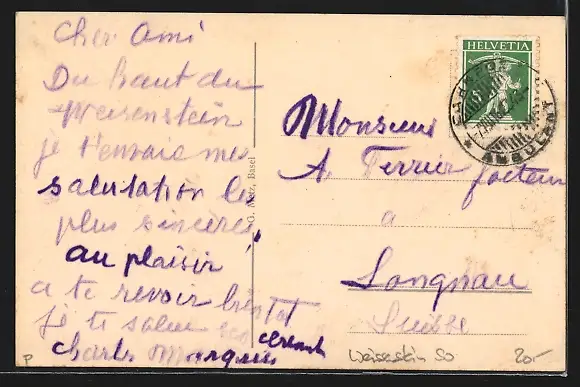 Cher Ami
Du haut du
Weisenstein
je t'envoie mes
salutation les
plus sincères
au plaisir
a te revoir bientot
je te salue
Charles
HELVETIA
AMBULANT
Monsieur
A. Ferrier facteur
a
Longnau
Suisse
Basel
Weisenstein SO
20.-
P